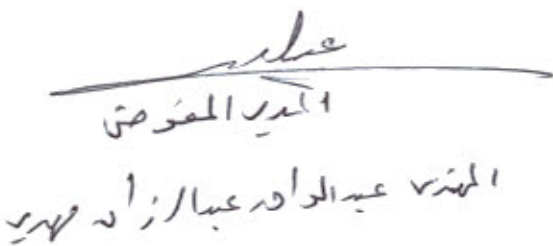 المدير المفوض
المهندس عبد الواحد عبد الرزاق مهدي